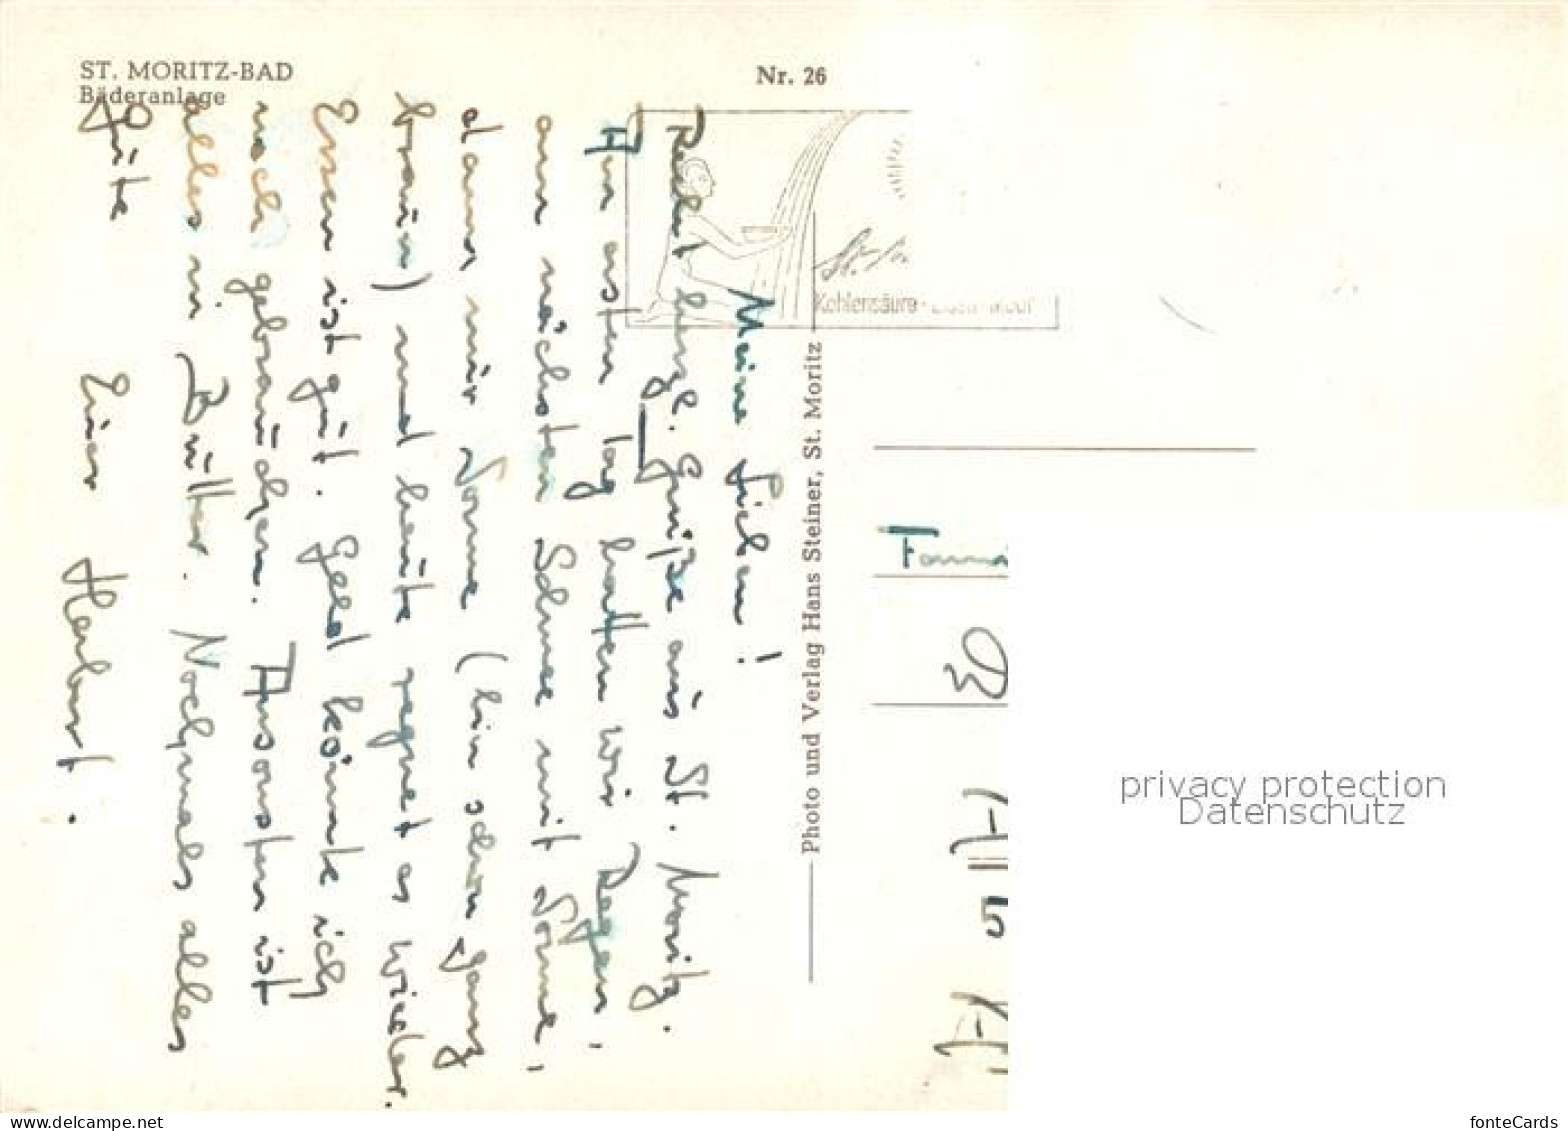 ST. MORITZ-BAD
Bäderanlage
Nr. 26
Kohlensäure-
Photo und Verlag Hans Steiner, St. Moritz
Meine Lieben!
Recht herzl. Grüße aus St. Moritz.
Am ersten Tag hatten wir Regen,
am nächsten Schnee mit Sonne,
dann nur Sonne (bin schon ganz
braun) und heute regnet es wieder.
Essen ist gut. Geld könnte ich
noch gebrauchen. Ansonsten ist
alles in Butter. Nochmals alles
Gute
Euer Herbert.
privacy protection
Datenschutz
www.delcampe.net
fonteCards